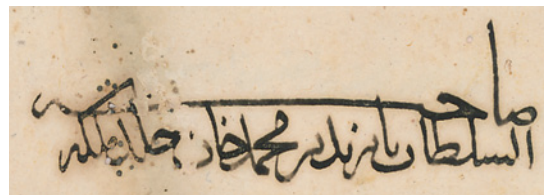 صاحبه
السلطان بايزيد بن محمد خان خلد ملكه